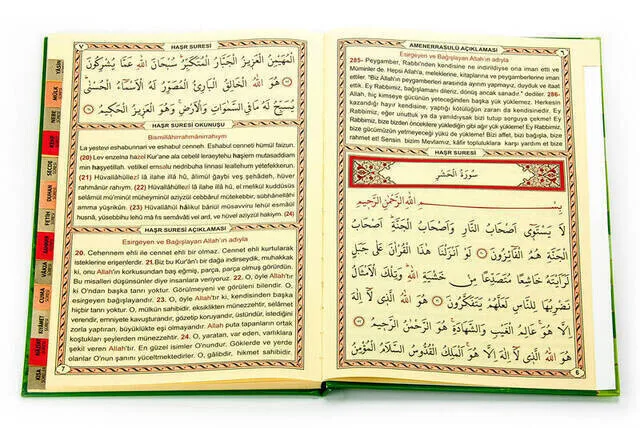 AMENERRASULÜ AÇIKLAMASI
٦
Esirgeyen ve Bağışlayan Allah'ın adıyla
285- Peygamber, Rabbi'nden kendisine ne indirildiyse ona iman etti ve
Müminler de. Hepsi Allah'a, meleklerine, kitaplarına ve peygamberlerine iman
ettiler. "Biz Allah'ın peygamberleri arasında ayırım yapmayız, duyduk ve itaat
ettik. Ey Rabbimiz, bağışlamanı dileriz, dönüş ancak sanadır." dediler. 286-
Allah, hiç kimseye gücünün yeteceğinden başka yük yüklemez. Herkesin
kazandığı hayır kendisine, yaptığı kötülüğün zararı da kendisinedir. Ey
Rabbimiz, eğer unuttuk ya da yanıldıysak bizi tutup sorguya çekme! Ey
Rabbimiz, bize bizden öncekilere yüklediğin gibi ağır yük yükleme! Ey Rabbimiz,
bize gücümüzün yetmeyeceği yükü de yükleme! Bizi affet, bizi bağışla, bize
rahmet et! Sensin bizim Mevlamız, kâfir topluluklara karşı yardım et bize
HAŞR SURESİ
سُورَةُ الْحَشْرِ
بِسْــــمِ اللهِ الرَّحْمٰنِ الرَّحِيمِ
لَا يَسْتَوِٓي اَصْحَابُ النَّارِ وَاَصْحَابُ الْجَنَّةِ اَصْحَابُ
الْجَنَّةِ هُمُ الْفَٓائِزُونَ لَوْ اَنْزَلْنَا هٰذَا الْقُرْاٰنَ عَلٰى جَبَلٍ
لَرَاَيْتَهُ خَاشِعًا مُتَصَدِّعًا مِنْ خَشْيَةِ اللهِ وَتِلْكَ الْاَمْثَالُ
نَضْرِبُهَا لِلنَّاسِ لَعَلَّهُمْ يَتَفَكَّرُونَ هُوَ اللهُ الَّذِي لَٓا اِلٰهَ
اِلَّا هُوَ عَالِمُ الْغَيْبِ وَالشَّهَادَةِ هُوَ الرَّحْمٰنُ الرَّحِيمُ
هُوَ اللهُ الَّذِي لَٓا اِلٰهَ اِلَّا هُوَ اَلْمَلِكُ الْقُدُّوسُ السَّلَامُ الْمُؤْمِنُ
6
٧
HAŞR SURESİ
الْمُهَيْمِنُ الْعَزِيزُ الْجَبَّارُ الْمُتَكَبِّرُ سُبْحَانَ اللهِ عَمَّا يُشْرِكُونَ
هُوَ اللهُ الْخَالِقُ الْبَارِئُ الْمُصَوِّرُ لَهُ الْاَسْمَٓاءُ الْحُسْنٰى
يُسَبِّحُ لَهُ مَا فِي السَّمٰوَاتِ وَالْاَرْضِ وَهُوَ الْعَزِيزُ الْحَكِيمُ
HAŞR SURESİ OKUNUŞU
Bismillâhirrahmânirrahıym
La yestevî eshabunnari ve eshabul cenneh. Eshabul cenneti hümül faizun.
(20) Lev enzelna hazel Kur'ane ala cebelil leraeytehu haşiem mutesaddiam
min haşyetillah. vetilkel emsalu nedribuha linnasi leallehum yetefekkerun.
(21) Hüvallâhüllezî lâ ilahe illâ hû, âlimül ğaybi veş şehâdeh, hüver
rahmânür rahıym. (22) Hüvallâhüllezî lâ ilahe illâ hû, el melikül kuddûsüs
selâmül mü'minül müheyminül aziyzül cebbârul mütekebbir, sübhânellahi
amma yüşrikûn. (23) Hüvallâhül hâlikul bâriül müsavviru lehül esmaül
husnâ, yüsebbihu lehû mâ fis semâvâti vel ard, ve hüvel aziyzül hakiym. (24)
HAŞR SURESİ AÇIKLAMASI
Esirgeyen ve Bağışlayan Allah'ın adıyla
20. Cehennem ehli ile cennet ehli bir olmaz. Cennet ehli kurtularak
isteklerine erişenlerdir. 21.Biz bu Kur'ân'ı bir dağa indirseydik, muhakkak
ki, onu Allah'ın korkusundan baş eğmiş, parça, parça olmuş görürdün.
Bu misalleri düşünsünler diye insanlara veriyoruz. 22. O, öyle Allah'tır
ki O'ndan başka tanrı yoktur. Görülmeyeni ve görüleni bilendir. O,
esirgeyen bağışlayandır. 23. O, öyle Allah'tır ki, kendisinden başka
hiçbir tanrı yoktur. O, mülkün sahibidir, eksiklikten münezzehtir, selâmet
verendir, emniyete kavuşturandır, gözetip koruyandır, üstündür, istediğini
zorla yaptıran, büyüklükte eşi olmayandır. Allah puta tapanların ortak
koştukları şeylerden münezzehtir. 24. O, yaratan, var eden, varlıklara
şekil veren Allah'tır. En güzel isimler O'nundur. Göklerde ve yerde
olanlar O'nun şanını yüceltmektedirler. O, gâlibdir, hikmet sahibidir.
7
YASİN
MÜLK
NEBE
SECDE
DUHAN
FETİH
VAKIA
CUMA
KISA